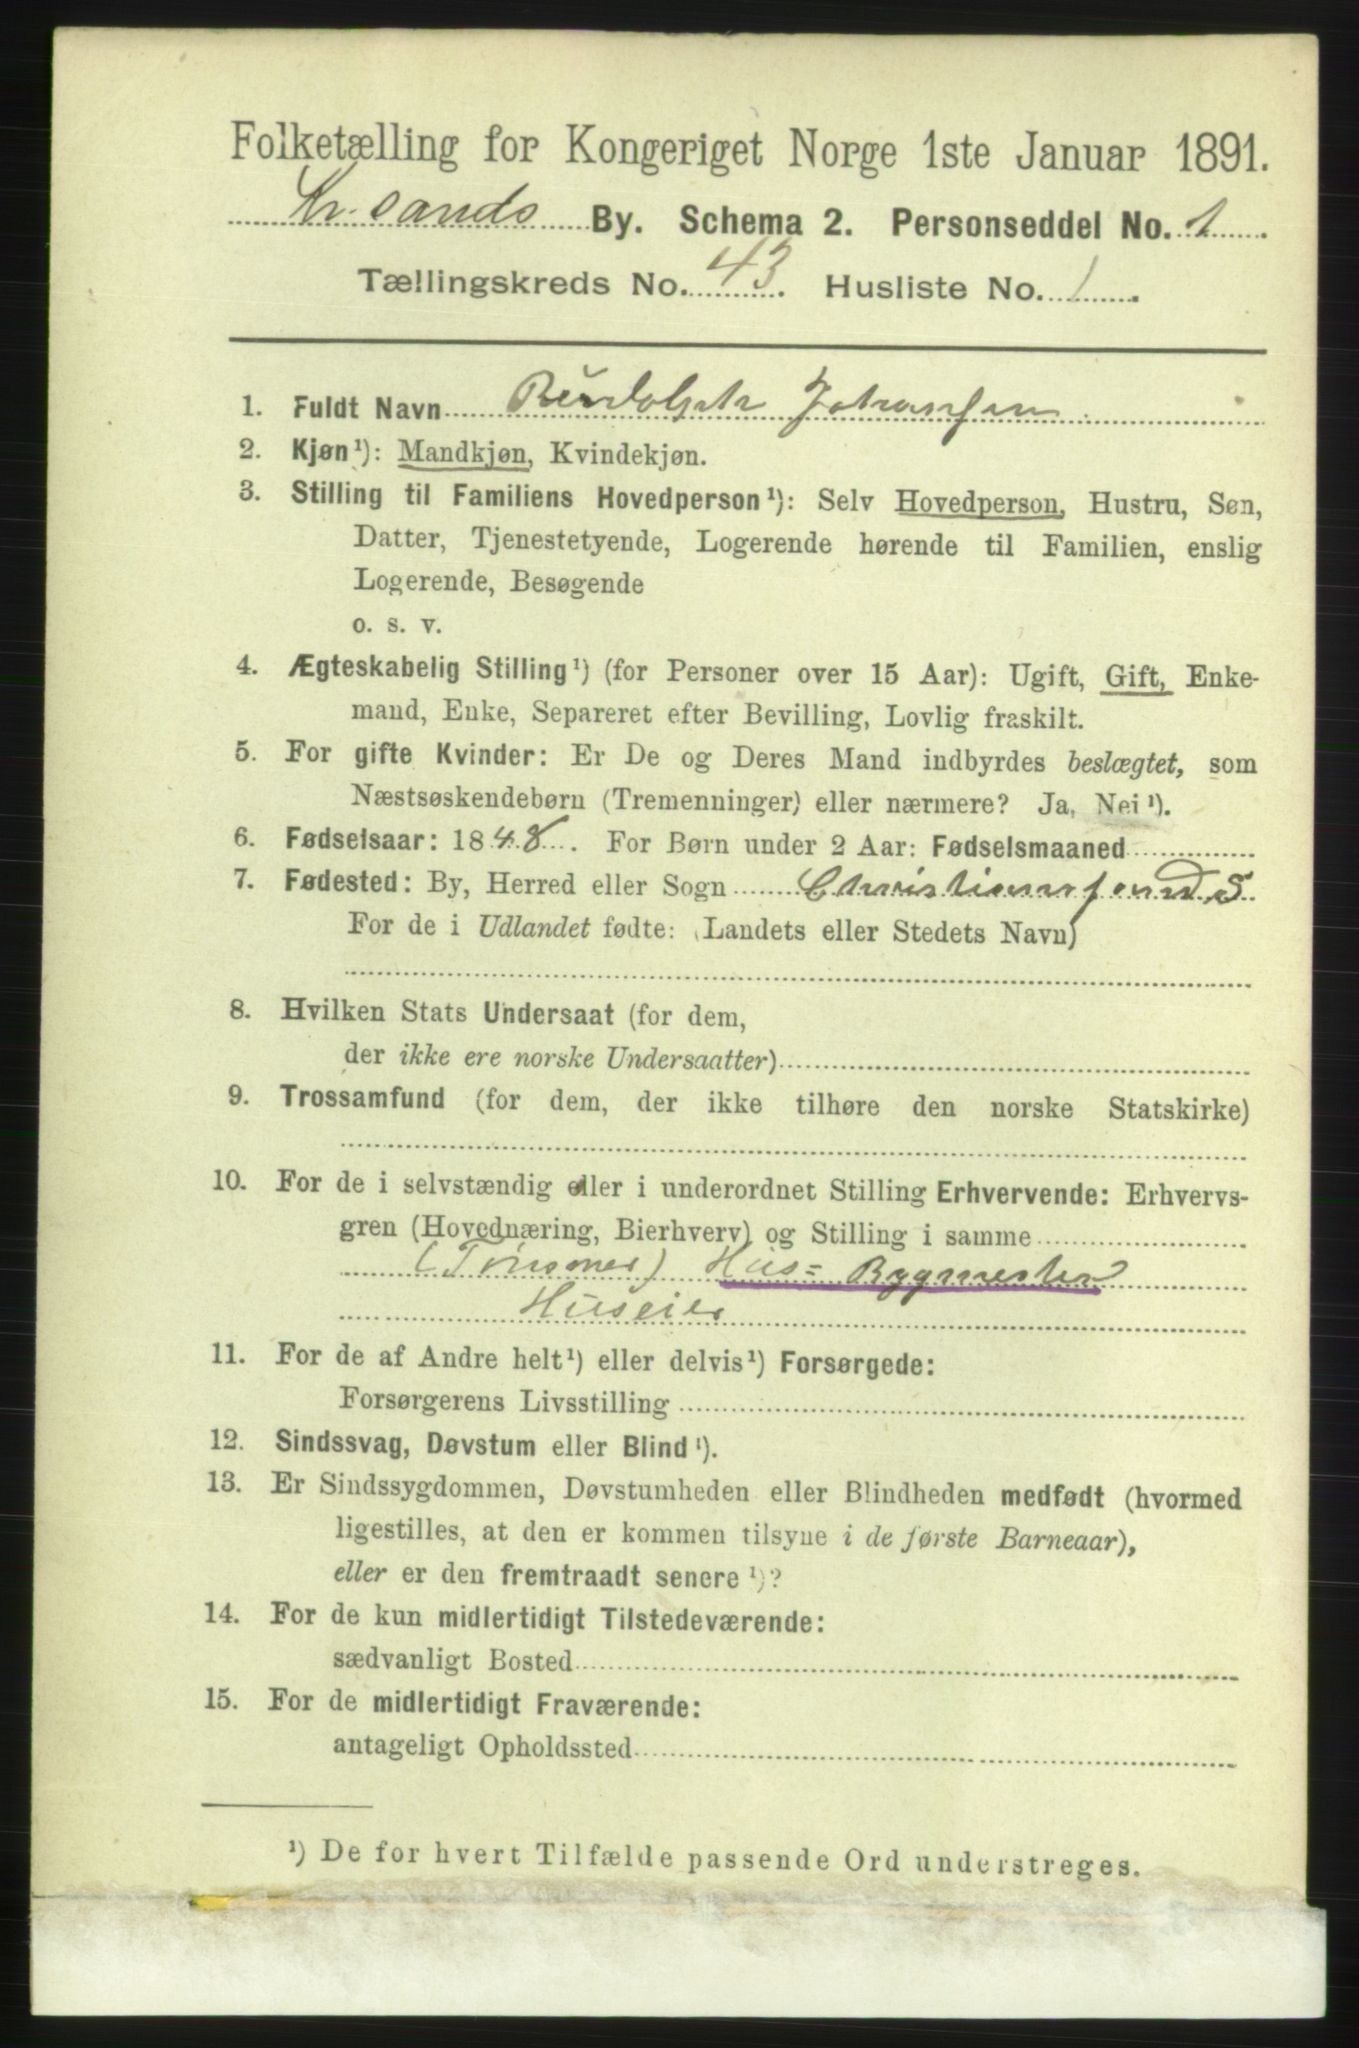 Folketælling for Kongeriget Norge 1ste Januar 1891.
Kr.sands By. Schema 2. Personseddel No. 1
Tællingskreds No. 43. Husliste No. 1.
1. Fuldt Navn Rudolph Johansen
2. Kjøn¹): Mandkjøn, Kvindekjøn.
3. Stilling til Familiens Hovedperson¹): Selv Hovedperson, Hustru, Søn,
Datter, Tjenestetyende, Logerende hørende til Familien, enslig
Logerende, Besøgende
o. s. v.
4. Ægteskabelig Stilling¹) (for Personer over 15 Aar): Ugift, Gift, Enke-
mand, Enke, Separeret efter Bevilling, Lovlig fraskilt.
5. For gifte Kvinder: Er De og Deres Mand indbyrdes beslægtet, som
Næstsøskendebørn (Tremenninger) eller nærmere? Ja, Nei¹).
6. Fødselsaar: 1848. For Børn under 2 Aar: Fødselsmaaned
7. Fødested: By, Herred eller Sogn Christianssand S
For de i Udlandet fødte: (Landets eller Stedets Navn)
8. Hvilken Stats Undersaat (for dem,
der ikke ere norske Undersaatter)
9. Trossamfund (for dem, der ikke tilhøre den norske Statskirke)
10. For de i selvstændig eller i underordnet Stilling Erhvervende: Erhvervs-
gren (Hovednæring, Bierhverv) og Stilling i samme
(Tømmer) Hus= Bygmester
Huseier
11. For de af Andre helt¹) eller delvis¹) Forsørgede:
Forsørgerens Livsstilling
12. Sindssvag, Døvstum eller Blind¹).
13. Er Sindssygdommen, Døvstumheden eller Blindheden medfødt (hvormed
ligestilles, at den er kommen tilsyne i de første Barneaar),
eller er den fremtraadt senere¹)?
14. For de kun midlertidigt Tilstedeværende:
sædvanligt Bosted
15. For de midlertidigt Fraværende:
antageligt Opholdssted
¹) De for hvert Tilfælde passende Ord understreges.